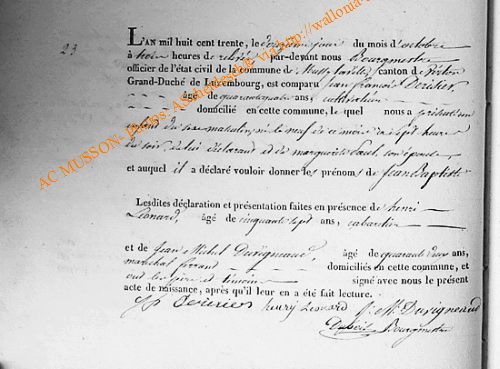 23
L'AN mil huit cent trente, le douzième jour du mois d'octobre
à trois heures de relevée par-devant nous Bourgmestre
officier de l'état civil de la commune de Mussy canton de Virton
Grand-Duché de Luxembourg, est comparu Jean françois
âgé de quarante ans, cultivateur
domicilié en cette commune, le quel nous a présenté un
enfant du sexe masculin, né le neuf de ce mois à sept heures
du soir, de lui déclarant et de marguerite son épouse
et auquel il a déclaré vouloir donner les prénoms de Jean Baptiste
Lesdites déclaration et présentation faites en présence de henri
Léonard, âgé de cinquante sept ans, cabaretier
et de Jean Michel Duvigneaud, âgé de quarante ans,
marechal ferrand domiciliés en cette commune, et
ont les père et témoins signé avec nous le présent
acte de naissance, après qu'il leur en a été fait lecture.
henry Leonard J. M. Duvigneaud
Bourgmestre
AC MUSSON- Photos Aschuldeselle via http://wallonia